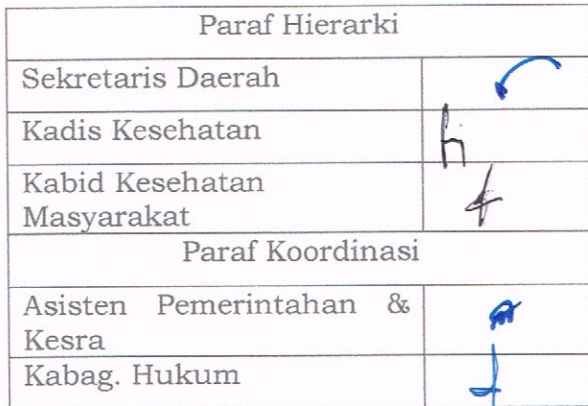 Paraf Hierarki
Sekretaris Daerah
Kadis Kesehatan
Kabid Kesehatan
Masyarakat
Paraf Koordinasi
Asisten Pemerintahan &
Kesra
Kabag. Hukum